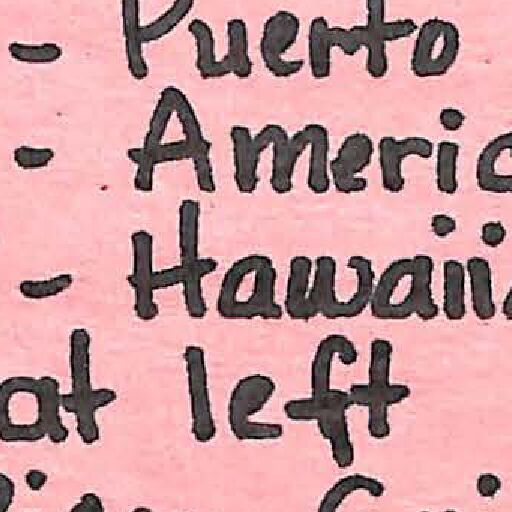 - Puerto
- Americ
- Hawaii
at left